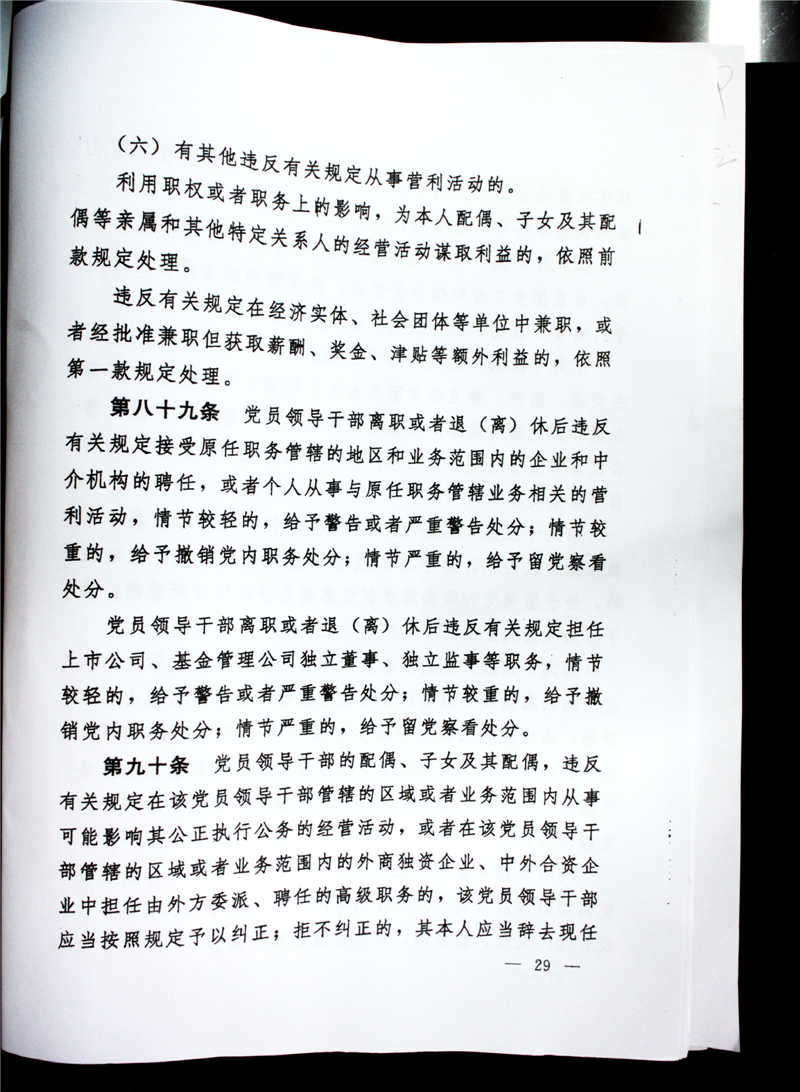 （六）有其他违反有关规定从事营利活动的。
利用职权或者职务上的影响，为本人配偶、子女及其配
偶等亲属和其他特定关系人的经营活动谋取利益的，依照前
款规定处理。
违反有关规定在经济实体、社会团体等单位中兼职，或
者经批准兼职但获取薪酬、奖金、津贴等额外利益的，依照
第一款规定处理。
第八十九条 党员领导干部离职或者退（离）休后违反
有关规定接受原任职务管辖的地区和业务范围内的企业和中
介机构的聘任，或者个人从事与原任职务管辖业务相关的营
利活动，情节较轻的，给予警告或者严重警告处分；情节较
重的，给予撤销党内职务处分；情节严重的，给予留党察看
处分。
党员领导干部离职或者退（离）休后违反有关规定担任
上市公司、基金管理公司独立董事、独立监事等职务，情节
较轻的，给予警告或者严重警告处分；情节较重的，给予撤
销党内职务处分；情节严重的，给予留党察看处分。
第九十条 党员领导干部的配偶、子女及其配偶，违反
有关规定在该党员领导干部管辖的区域或者业务范围内从事
可能影响其公正执行公务的经营活动，或者在该党员领导干
部管辖的区域或者业务范围内的外商独资企业、中外合资企
业中担任由外方委派、聘任的高级职务的，该党员领导干部
应当按照规定予以纠正；拒不纠正的，其本人应当辞去现任
— 29 —